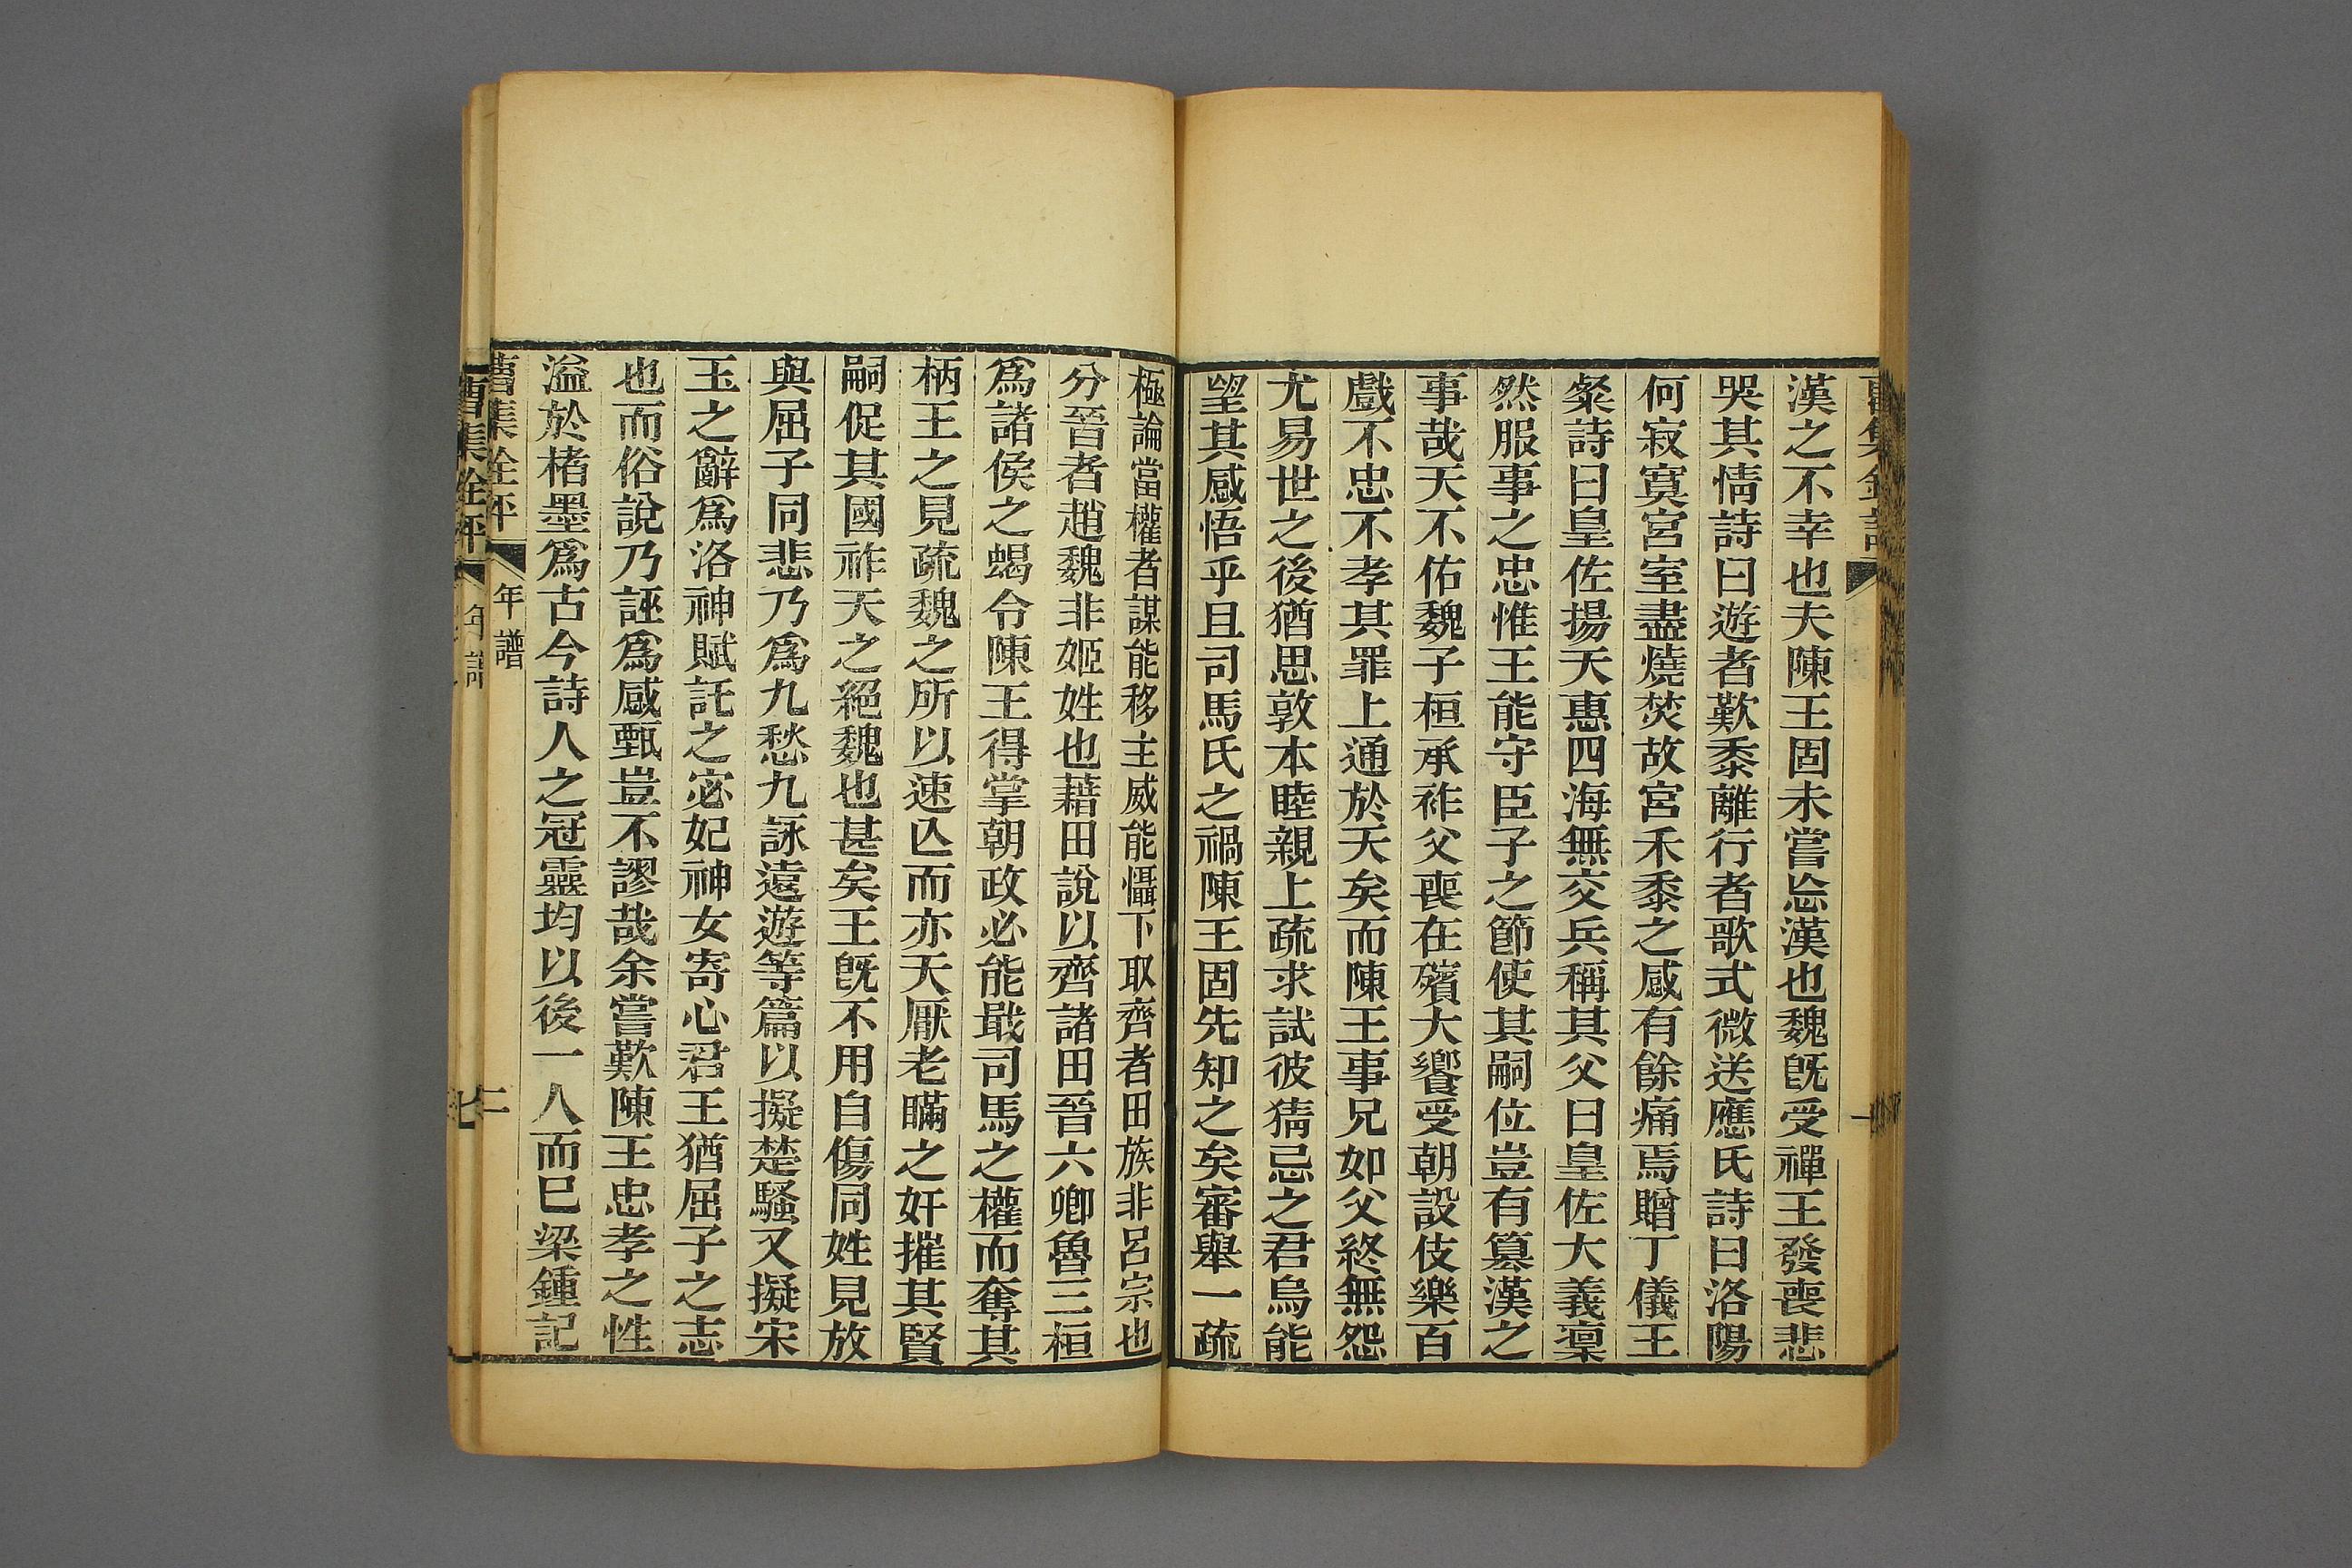 漢之不幸也夫陳王固未嘗忘漢也魏旣受禪王發喪悲
哭其情詩曰遊者歎黍離行者歌式微送應氏詩曰洛陽
何寂寞宮室盡燒焚故宮禾黍之感有餘痛焉贈丁儀王
粲詩曰皇佐揚天惠四海無交兵稱其父曰皇佐大義凜
然服事之忠惟王能守臣子之節使其嗣位豈有篡漢之
事哉天不佑魏子桓承祚父喪在殯大饗受朝設伎樂百
戲不忠不孝其罪上通於天矣而陳王事兄如父終無怨
尤易世之後猶思敦本睦親上疏求試彼猜忌之君烏能
望其感悟乎且司馬氏之禍陳王固先知之矣審舉一疏
極論當權者謀能移主威能懾下取齊者田族非呂宗也
分晉者趙魏非姬姓也藉田說以齊諸田晉六卿魯三桓
爲諸侯之蝎令陳王得掌朝政必能戢司馬之權而奪其
柄王之見疏魏之所以速亾而亦天厭老瞞之奸摧其賢
嗣促其國祚天之絕魏也甚矣王旣不用自傷同姓見放
與屈子同悲乃爲九愁九詠遠遊等篇以擬楚騷又擬宋
玉之辭爲洛神賦託之宓妃神女寄心君王猶屈子之志
也而俗說乃誣爲感甄豈不謬哉余嘗歎陳王忠孝之性
溢於楮墨爲古今詩人之冠靈均以後一人而已梁鍾記
曹集銓評 年譜 二
曹集銓評 年譜